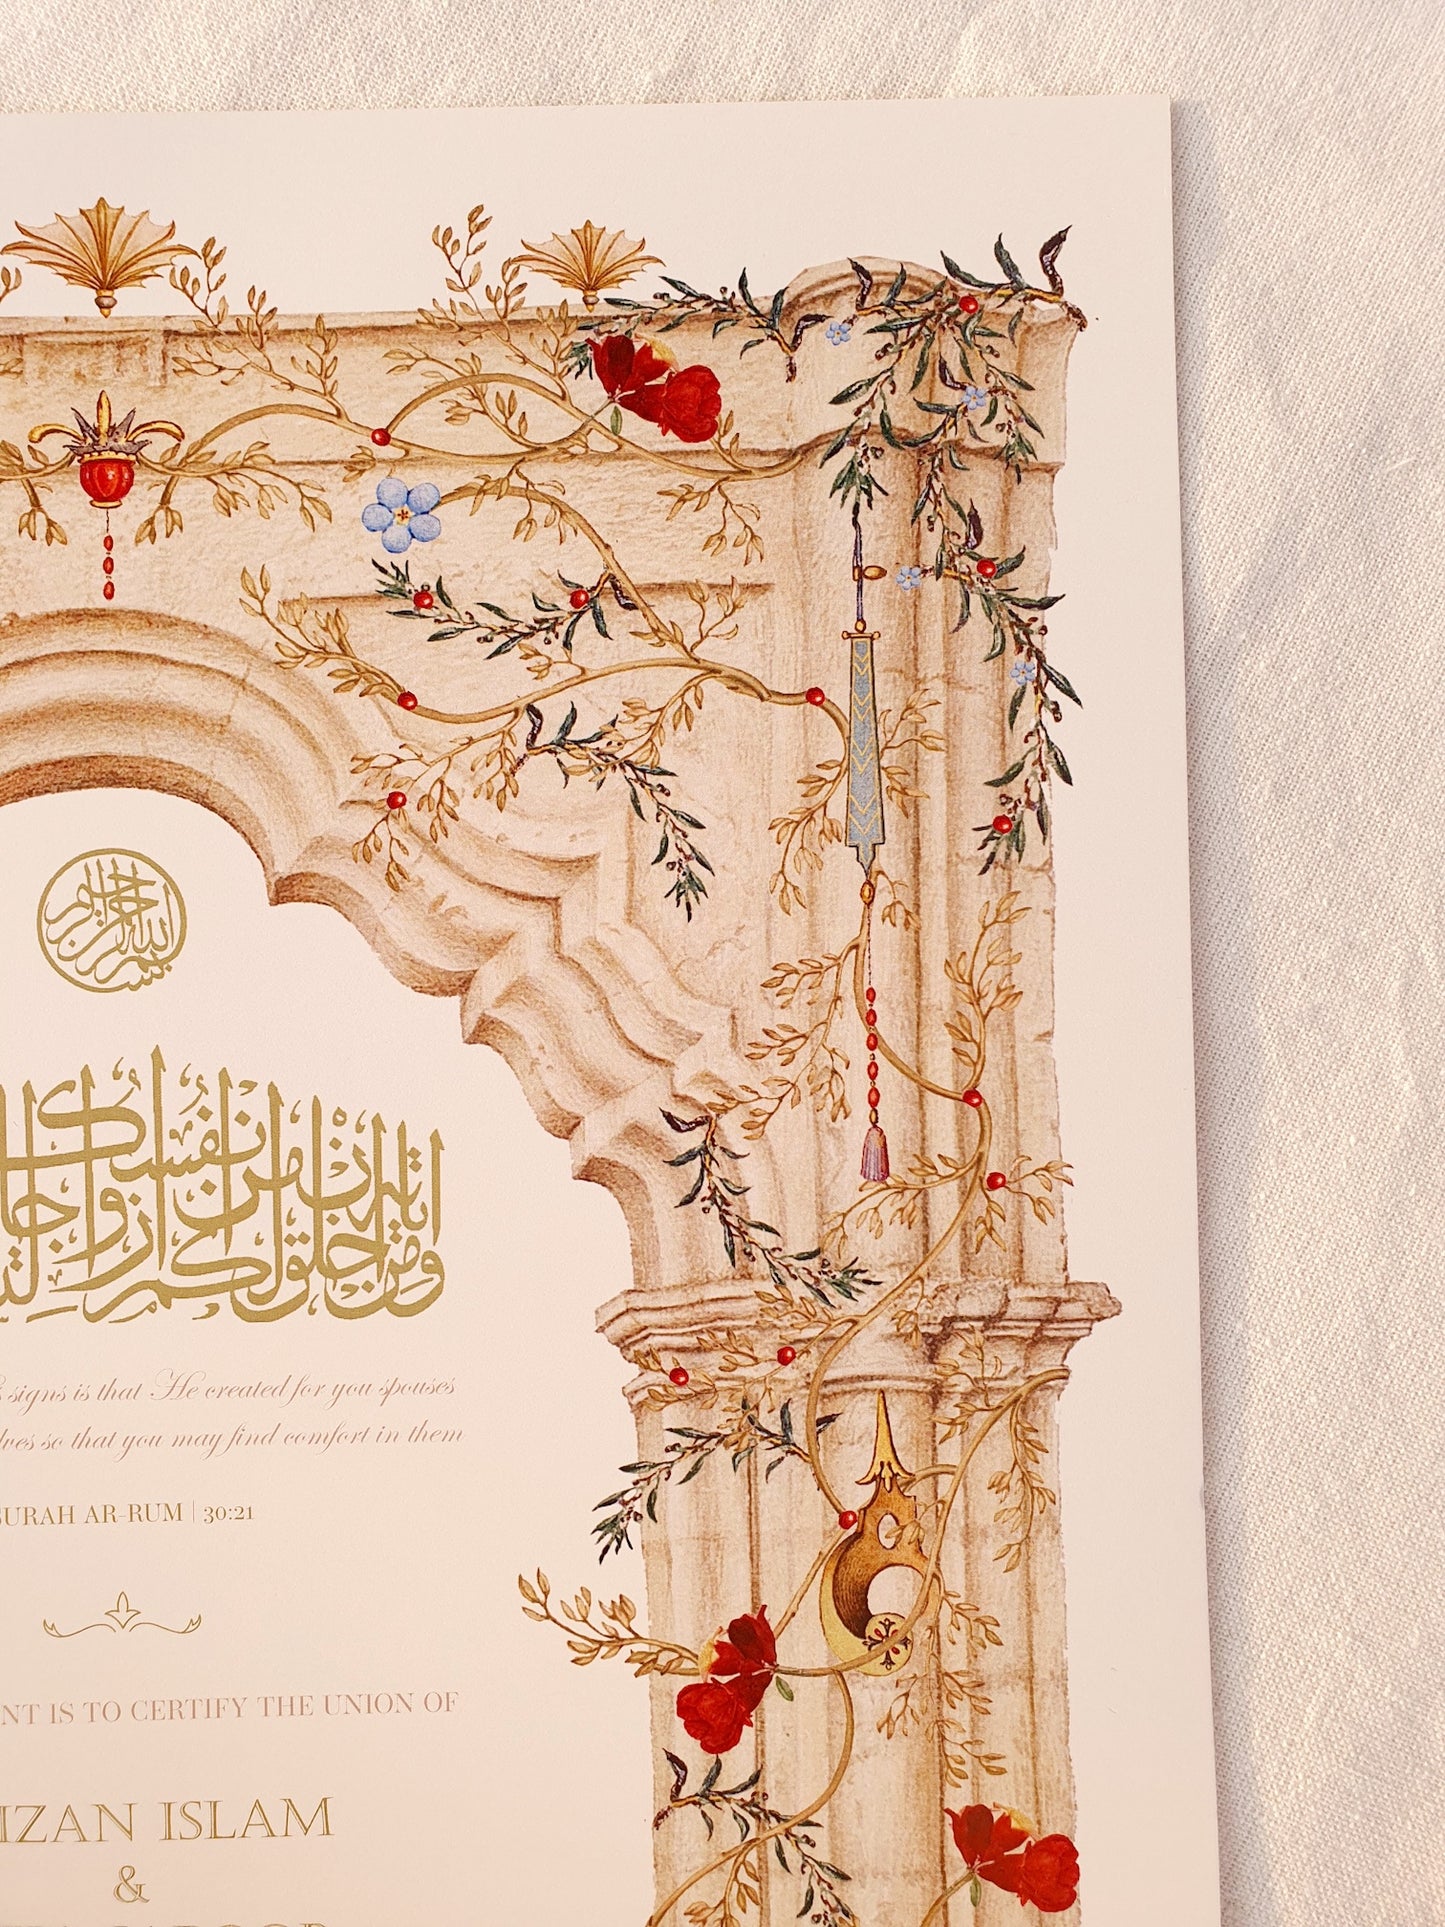 بسم الله الرحمن الرحيم
ومن آياته أن خلق لكم من أنفسكم أزواجا
signs is that He created for you spouses
lves so that you may find comfort in them
SURAH AR-RUM | 30:21
NT IS TO CERTIFY THE UNION OF
IZAN ISLAM
&